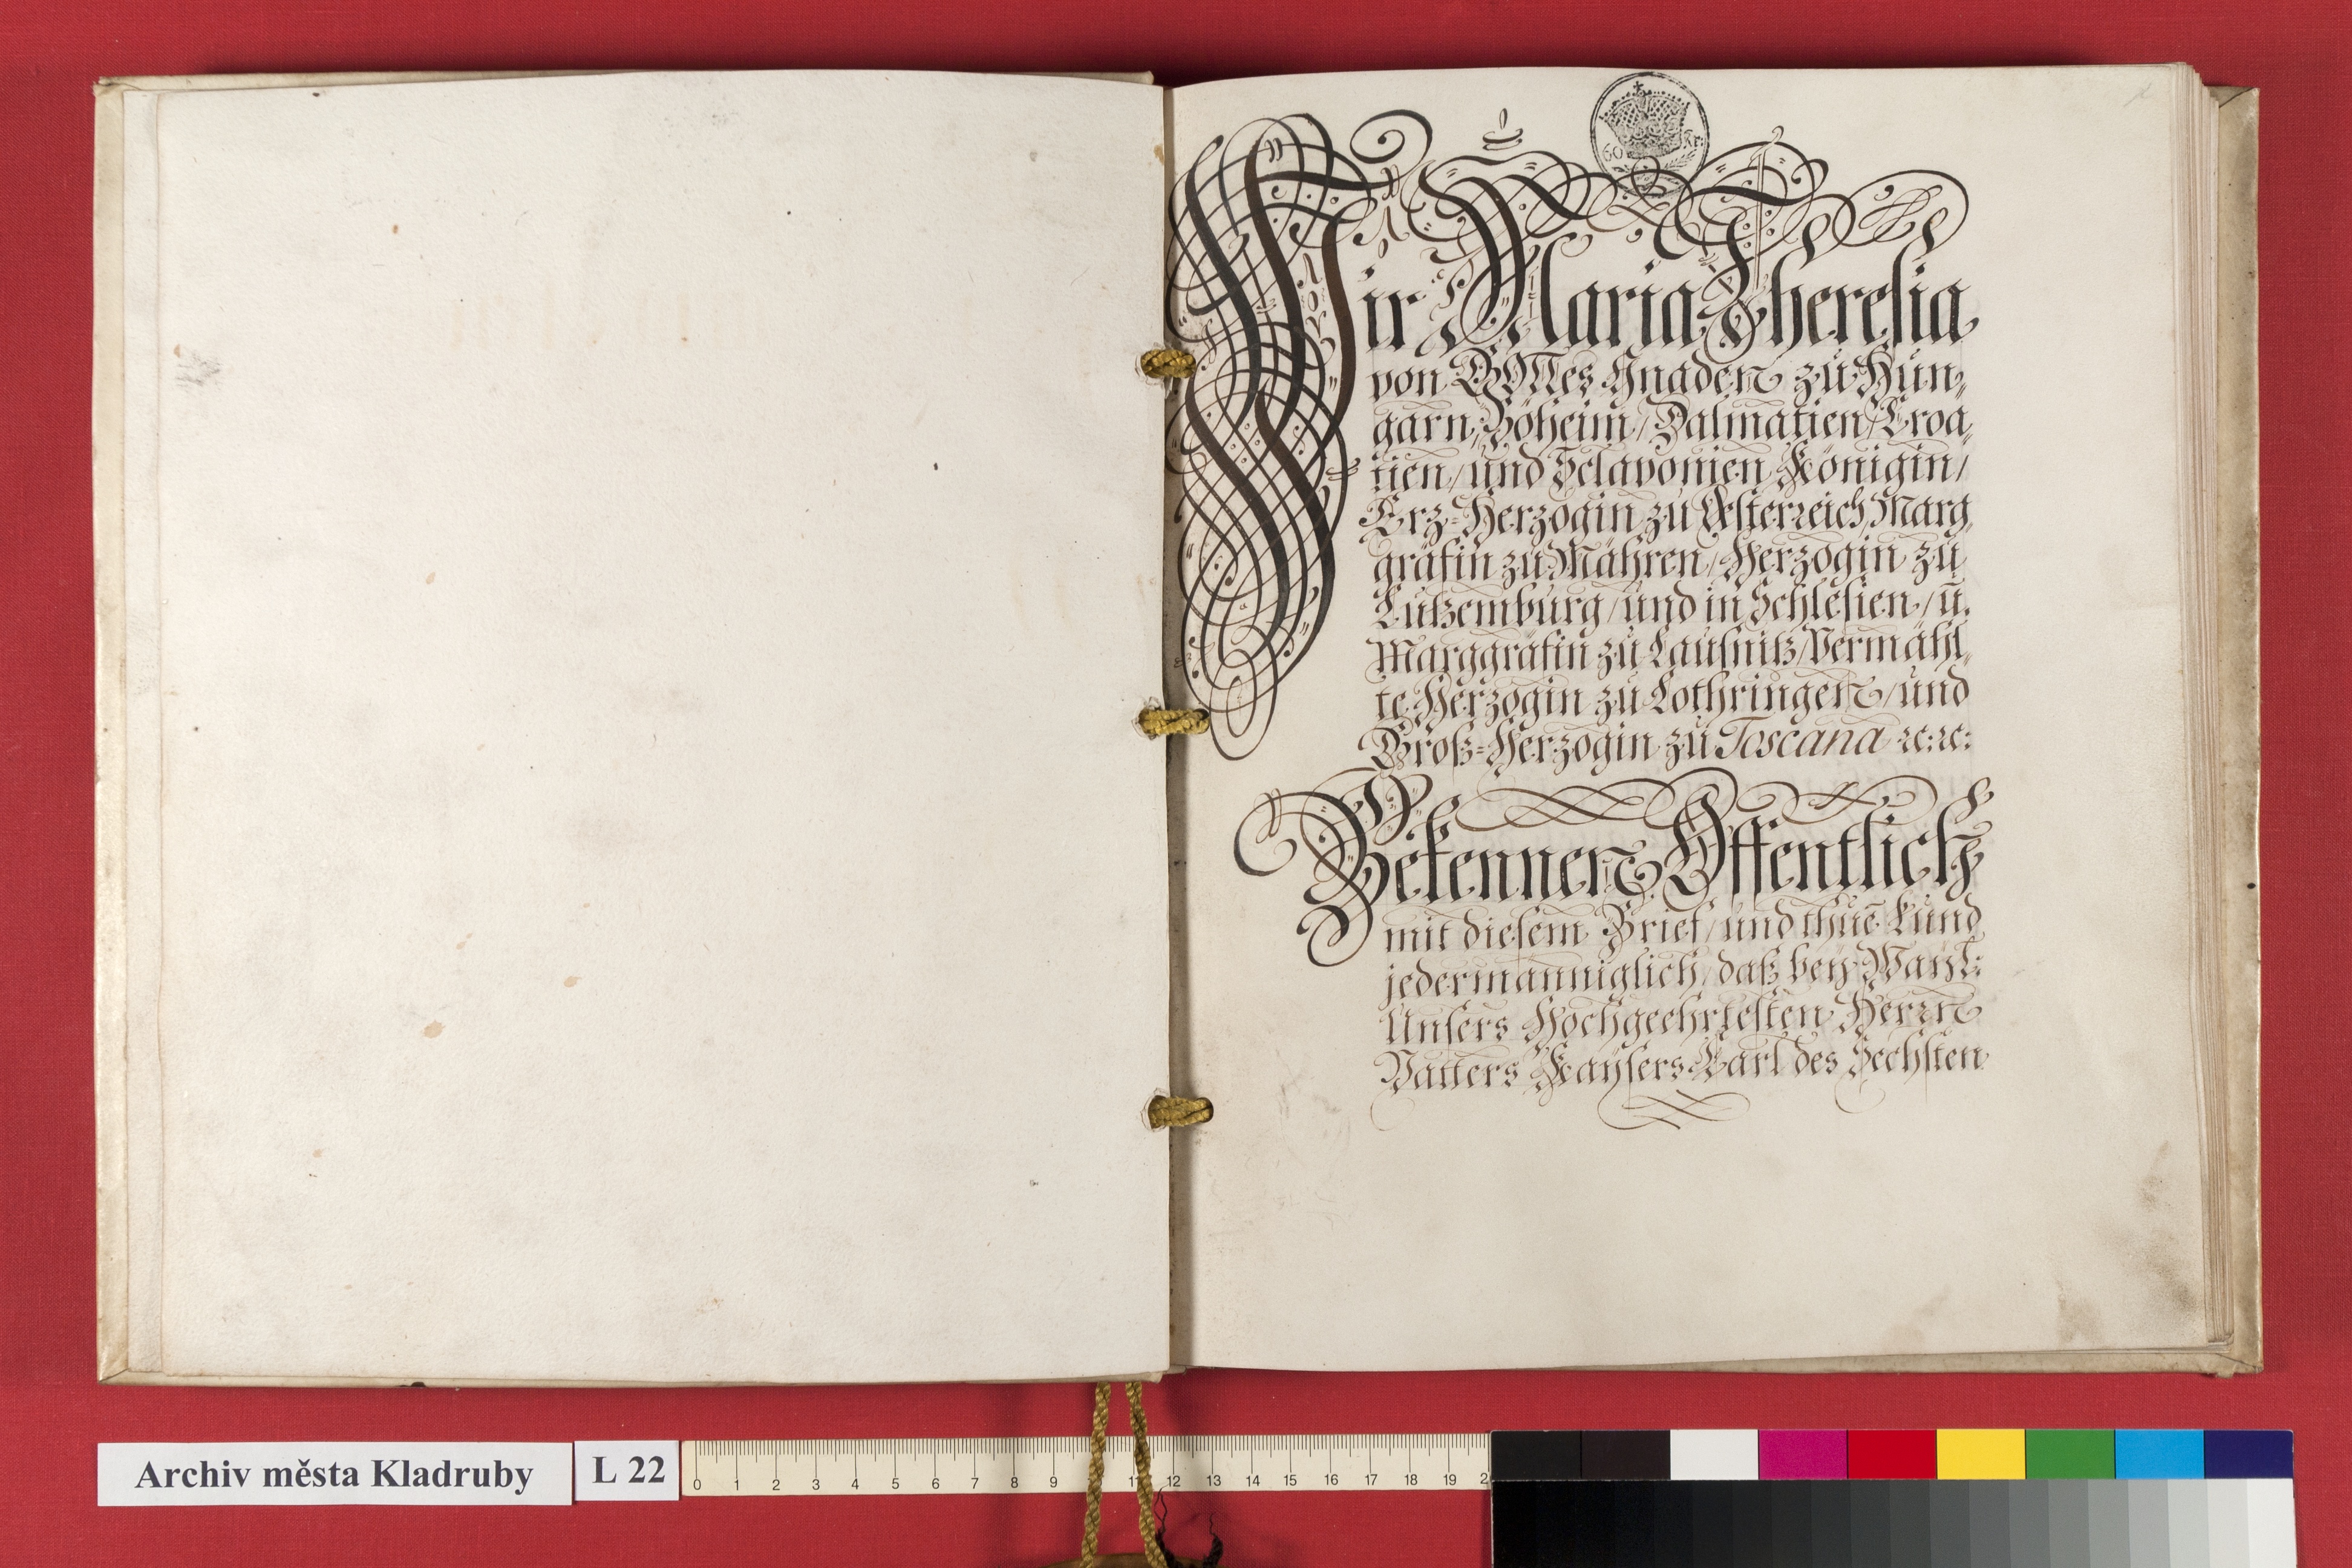 60 Kr.
Wir Maria Theresia
von GOTTes Gnaden zu Hun-
garn, Böheim / Dalmatien / Croa-
tien / und Sclavonien Königin /
Erz-Herzogin zu Österreich, Marg-
gräfin zu Mähren / Herzogin zu
Lutzemburg / und in Schlesien / u.
Marggräfin zu Lausnitz / Vermähl-
te Herzogin zu Lothringen / und
Groß-Herzogin zu Toscana ꝛc: ꝛc:
Bekennen Öffentlich
mit diesem Brief / und thuē kund
jedermänniglich / daß bey Wayl:
Unsers Hochgeehrtesten Herrn
Vatters Kaysers Carl des Sechsten
Archiv města Kladruby
L 22
0 1 2 3 4 5 6 7 8 9 11 12 13 14 15 16 17 18 19 2